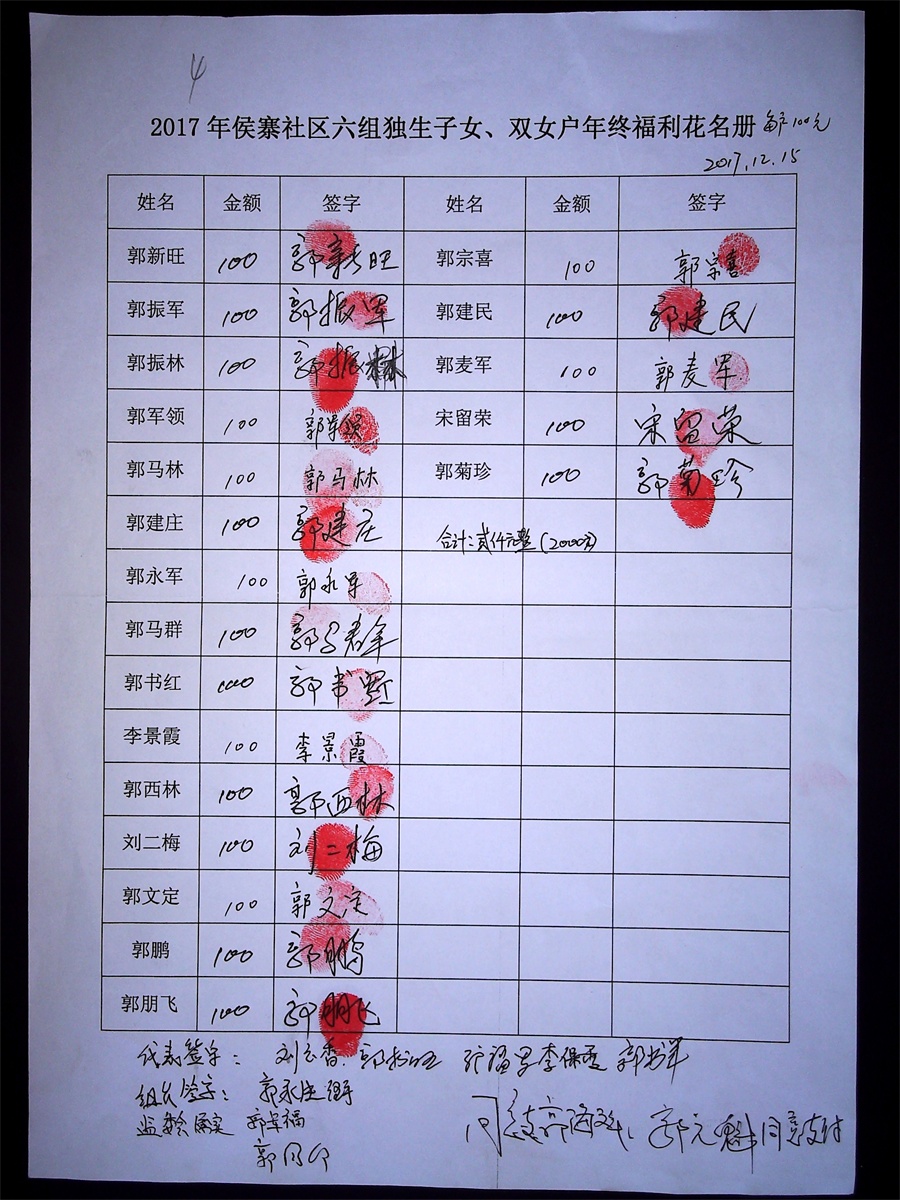 4
2017年侯寨社区六组独生子女、双女户年终福利花名册 每户100元
2017.12.15
姓名 金额 签字 姓名 金额 签字
郭新旺 100 郭新旺 郭宗喜 100 郭宗喜
郭振军 100 郭振军 郭建民 100 郭建民
郭振林 100 郭振林 郭麦军 100 郭麦军
郭军领 100 郭军领 宋留荣 100 宋留荣
郭马林 100 郭马林 郭菊珍 100 郭菊珍
郭建庄 100 郭建庄 合计:贰仟元整(2000元)
郭永军 100 郭永军
郭马群 100 郭马群
郭书红 100 郭书
李景霞 100 李景霞
郭西林 100 郭西林
刘二梅 100 刘二梅
郭文定 100 郭文定
郭鹏 100 郭鹏
郭朋飞 100 郭朋飞
代表签字: 李保 郭书军
组长签字: 郭永
监委会 郭
郭
同意 郭元魁 同意支付